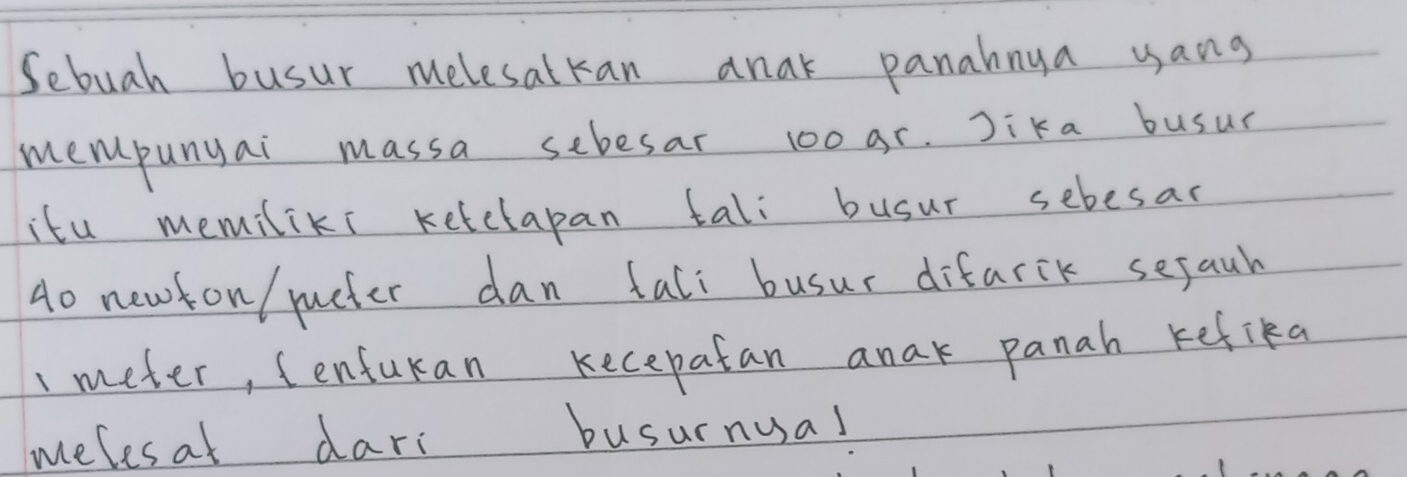 Sebuah busur melesatkan anak panahnya yang
mempunyai massa sebesar 100 gr. Jika busur
itu memiliki ketetapan tali busur sebesar
40 newton/meter dan tali busur ditarik sejauh
1 meter, tentukan kecepatan anak panah ketika
melesat dari busurnya!